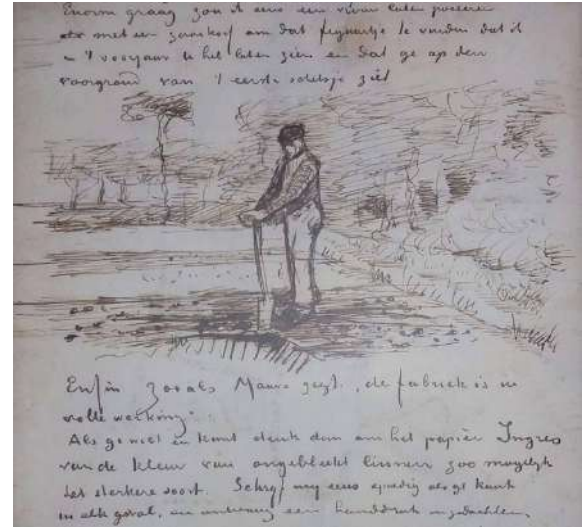 Enorm graag zou ik eens een vrouw laten poseeren
met een zaaikorf om dat figuurtje te vinden dat ik
in 't voorjaar u heb laten zien en dat ge op den
voorgrond van 't eerste schetsje ziet
Enfin zooals Mauve zegt, „de fabriek is in
volle werking".
Als ge wilt en kunt denk dan om het papier Ingres
van de kleur van ongebleekt linnen zoo mogelijk
het sterkere soort. Schrijf mij eens spoedig als ge kunt
in elk geval, en ontvang een handdruk in gedachten.